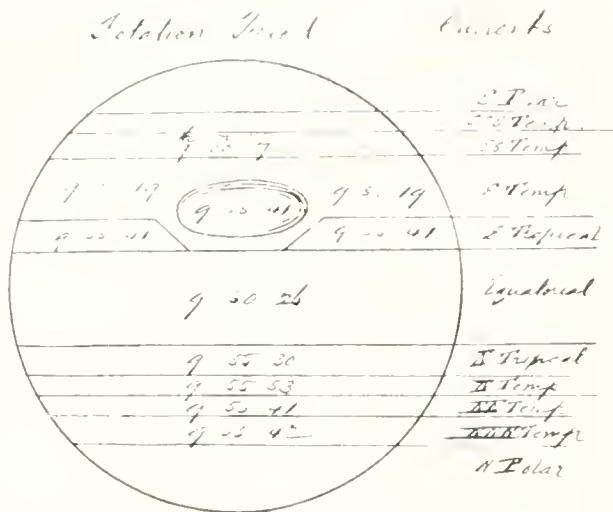 Rotation Period Currents
S Polar
SSS Temp.
9 55 7 SS Temp
9 55 19 9 55 41 9 55 19 S Temp
9 55 41 9 55 41 S Tropical
9 50 26 Equatorial
9 55 30 N Tropical
9 55 53 N Temp
9 55 41 NN Temp
9 55 42 NNN Temp
N Polar